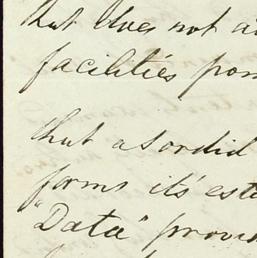 that does not a
facilities pos
that a sordid
forms it's este
"Data" provi